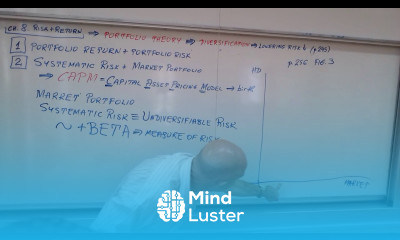 Ch. 8 RISK + RETURN → PORTFOLIO THEORY ⇒ DIVERSIFICATION → LOWERING RISK (p 255)
1 PORTFOLIO RETURN + PORTFOLIO RISK
p. 256 FIG. 3
2 SYSTEMATIC RISK + MARKET PORTFOLIO
→ CAPM = CAPITAL ASSET PRICING MODEL →
MARKET PORTFOLIO
SYSTEMATIC RISK ≡ UNDIVERSIFIABLE RISK
~ + BETA ⇒ MEASURE OF RISK
Mind
Luster